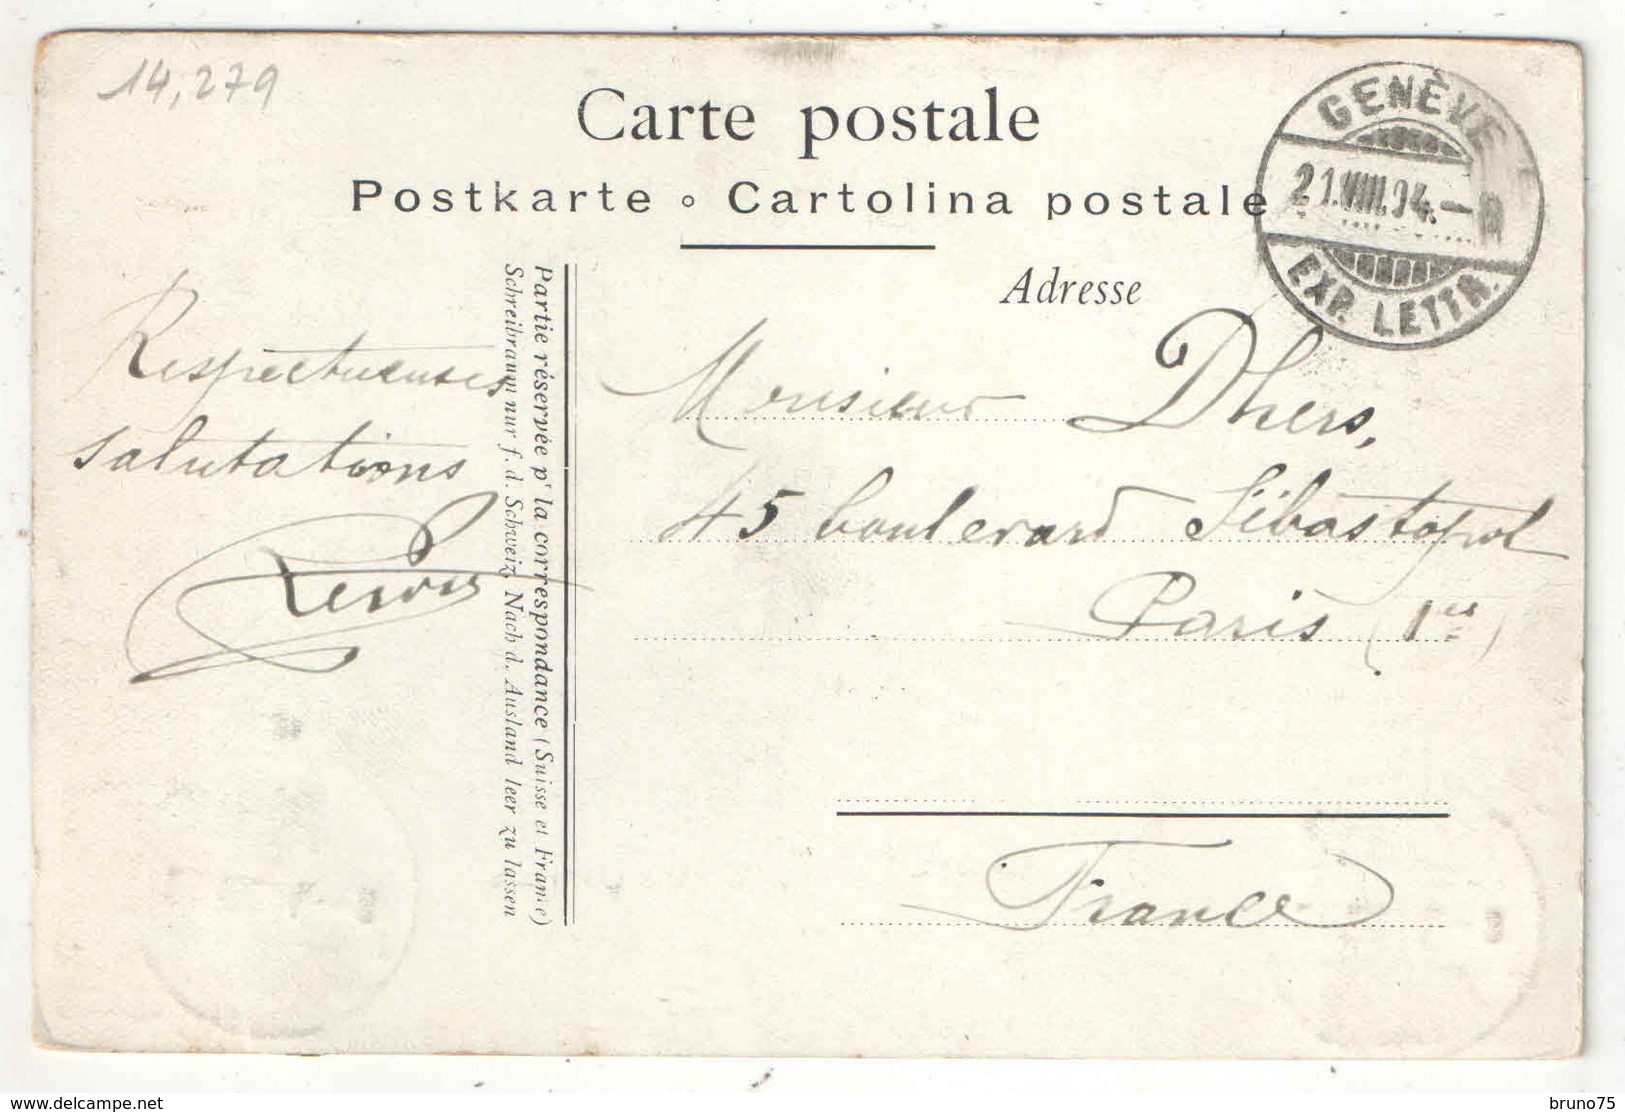 14,279
Carte postale
Postkarte ∘ Cartolina postale
GENÈVE
21.VIII.04.–
EXP. LETTR.
Partie réservée p' la correspondance (Suisse et France)
Schreibraum nur f. d. Schweiz, Nach d. Ausland leer zu lassen
Adresse
Respectueuses
salutations
Monsieur Dhers,
45 boulevard Sébastopol
Paris (1er)
France
www.delcampe.net
bruno75